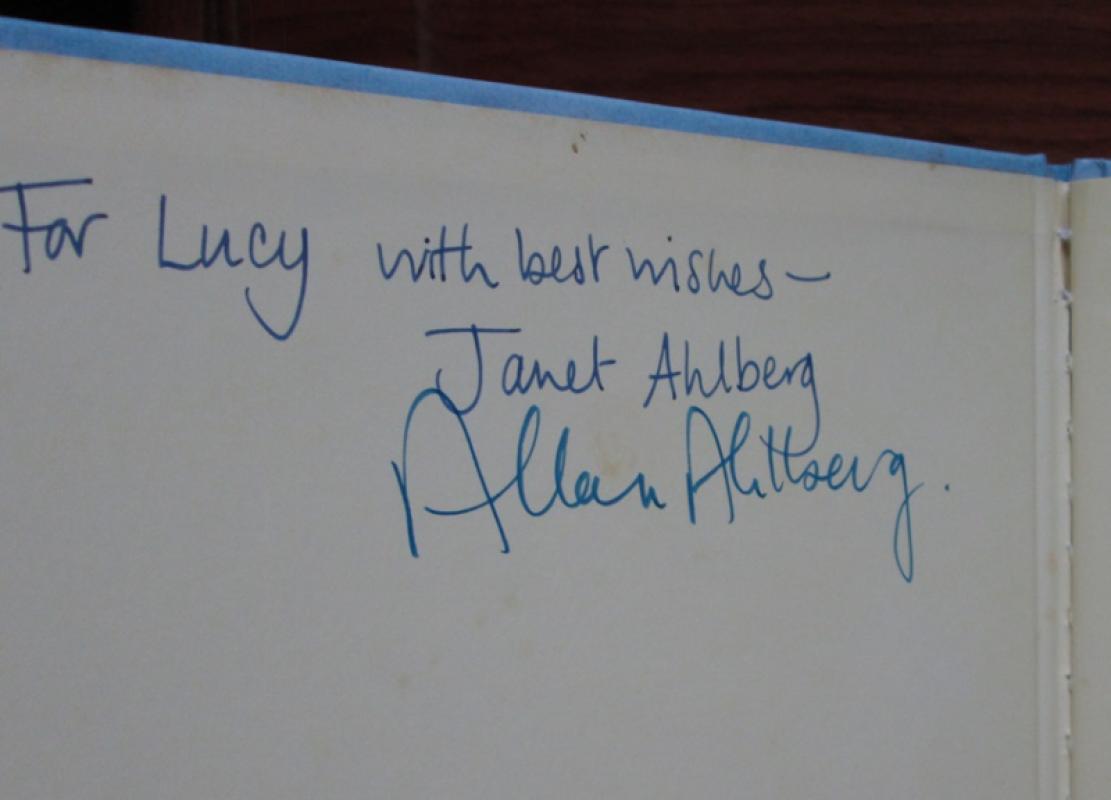 For Lucy with best wishes—
Janet Ahlberg
Allan Ahlberg.